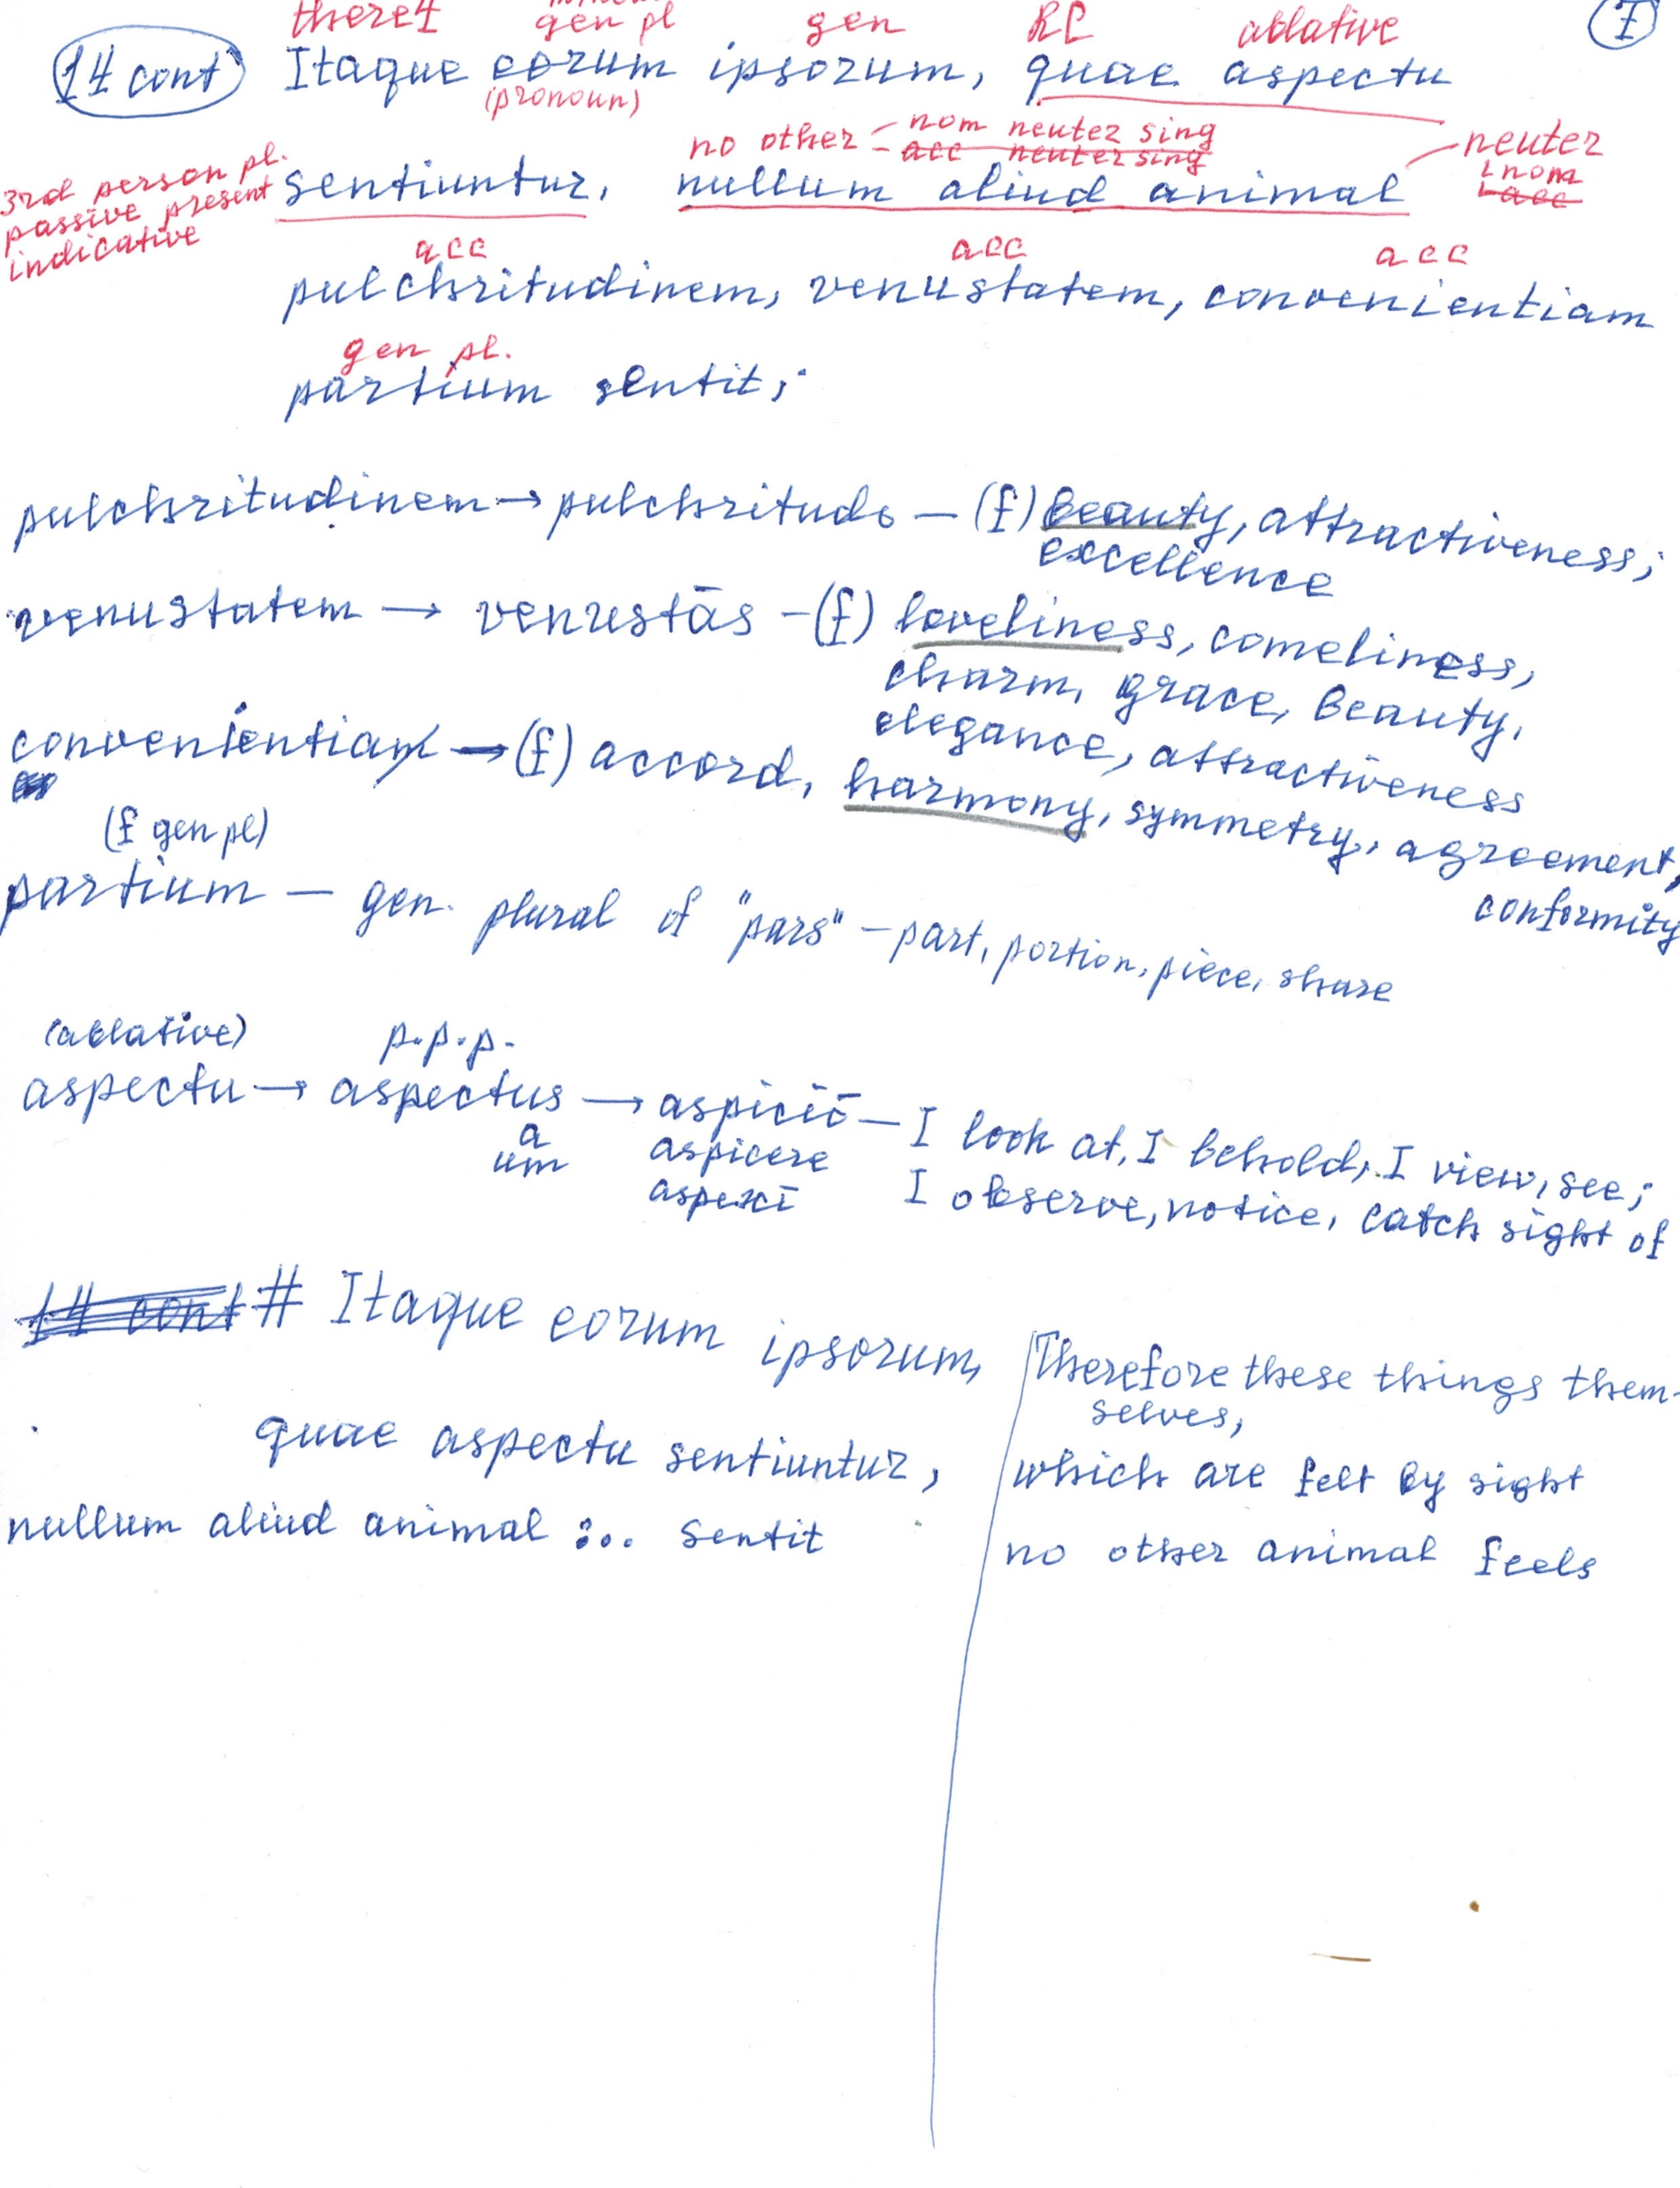 there4 gen pl gen RC ablative 7
14 cont Itaque eorum ipsorum, quae aspectu
(pronoun)
no other - nom neuter sing
- acc neuter sing
neuter
nom
acc
3rd person pl.
passive present
indicative
sentiuntur, nullum aliud animal
acc acc acc
pulchritudinem, venustatem, convenientiam
gen pl.
partium sentit;
pulchritudinem → pulchritudo – (f) beauty, attractiveness;
excellence
venustatem → venustās – (f) loveliness, comeliness,
charm, grace, beauty,
elegance, attractiveness
convenientiam → (f) accord, harmony, symmetry, agreement,
conformity
(f gen pl)
partium – gen. plural of "pars" – part, portion, piece, share
(ablative) p.p.p.
aspectu → aspectus → aspiciō – I look at, I behold, I view, see;
a aspicere I observe, notice, catch sight of
um aspexī
14 cont # Itaque eorum ipsorum, Therefore these things them-
selves,
quae aspectu sentiuntur, which are felt by sight
nullum aliud animal ... sentit no other animal feels